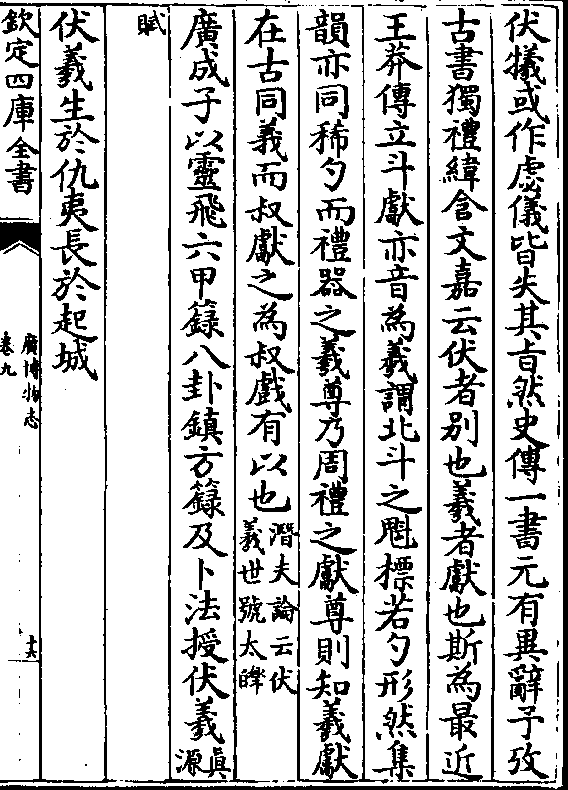 伏犧或作虙儀皆失其㫖然史傳一書元有異辭予攷
古書獨禮緯含文嘉云伏者别也羲者獻也斯為最近
王莽傳立斗獻亦音為羲謂北斗之魁標若勺形然集
韻亦同稀勺而禮器之羲尊乃周禮之獻尊則知羲獻
在古同義而叔獻之為叔戲有以也潛夫論云伏
羲世號太皥
廣成子以靈飛六甲籙八卦鎮方籙及卜法授伏羲真
源
賦
伏羲生於仇夷長於起城
欽定四庫全書
廣博物志
卷九
十六